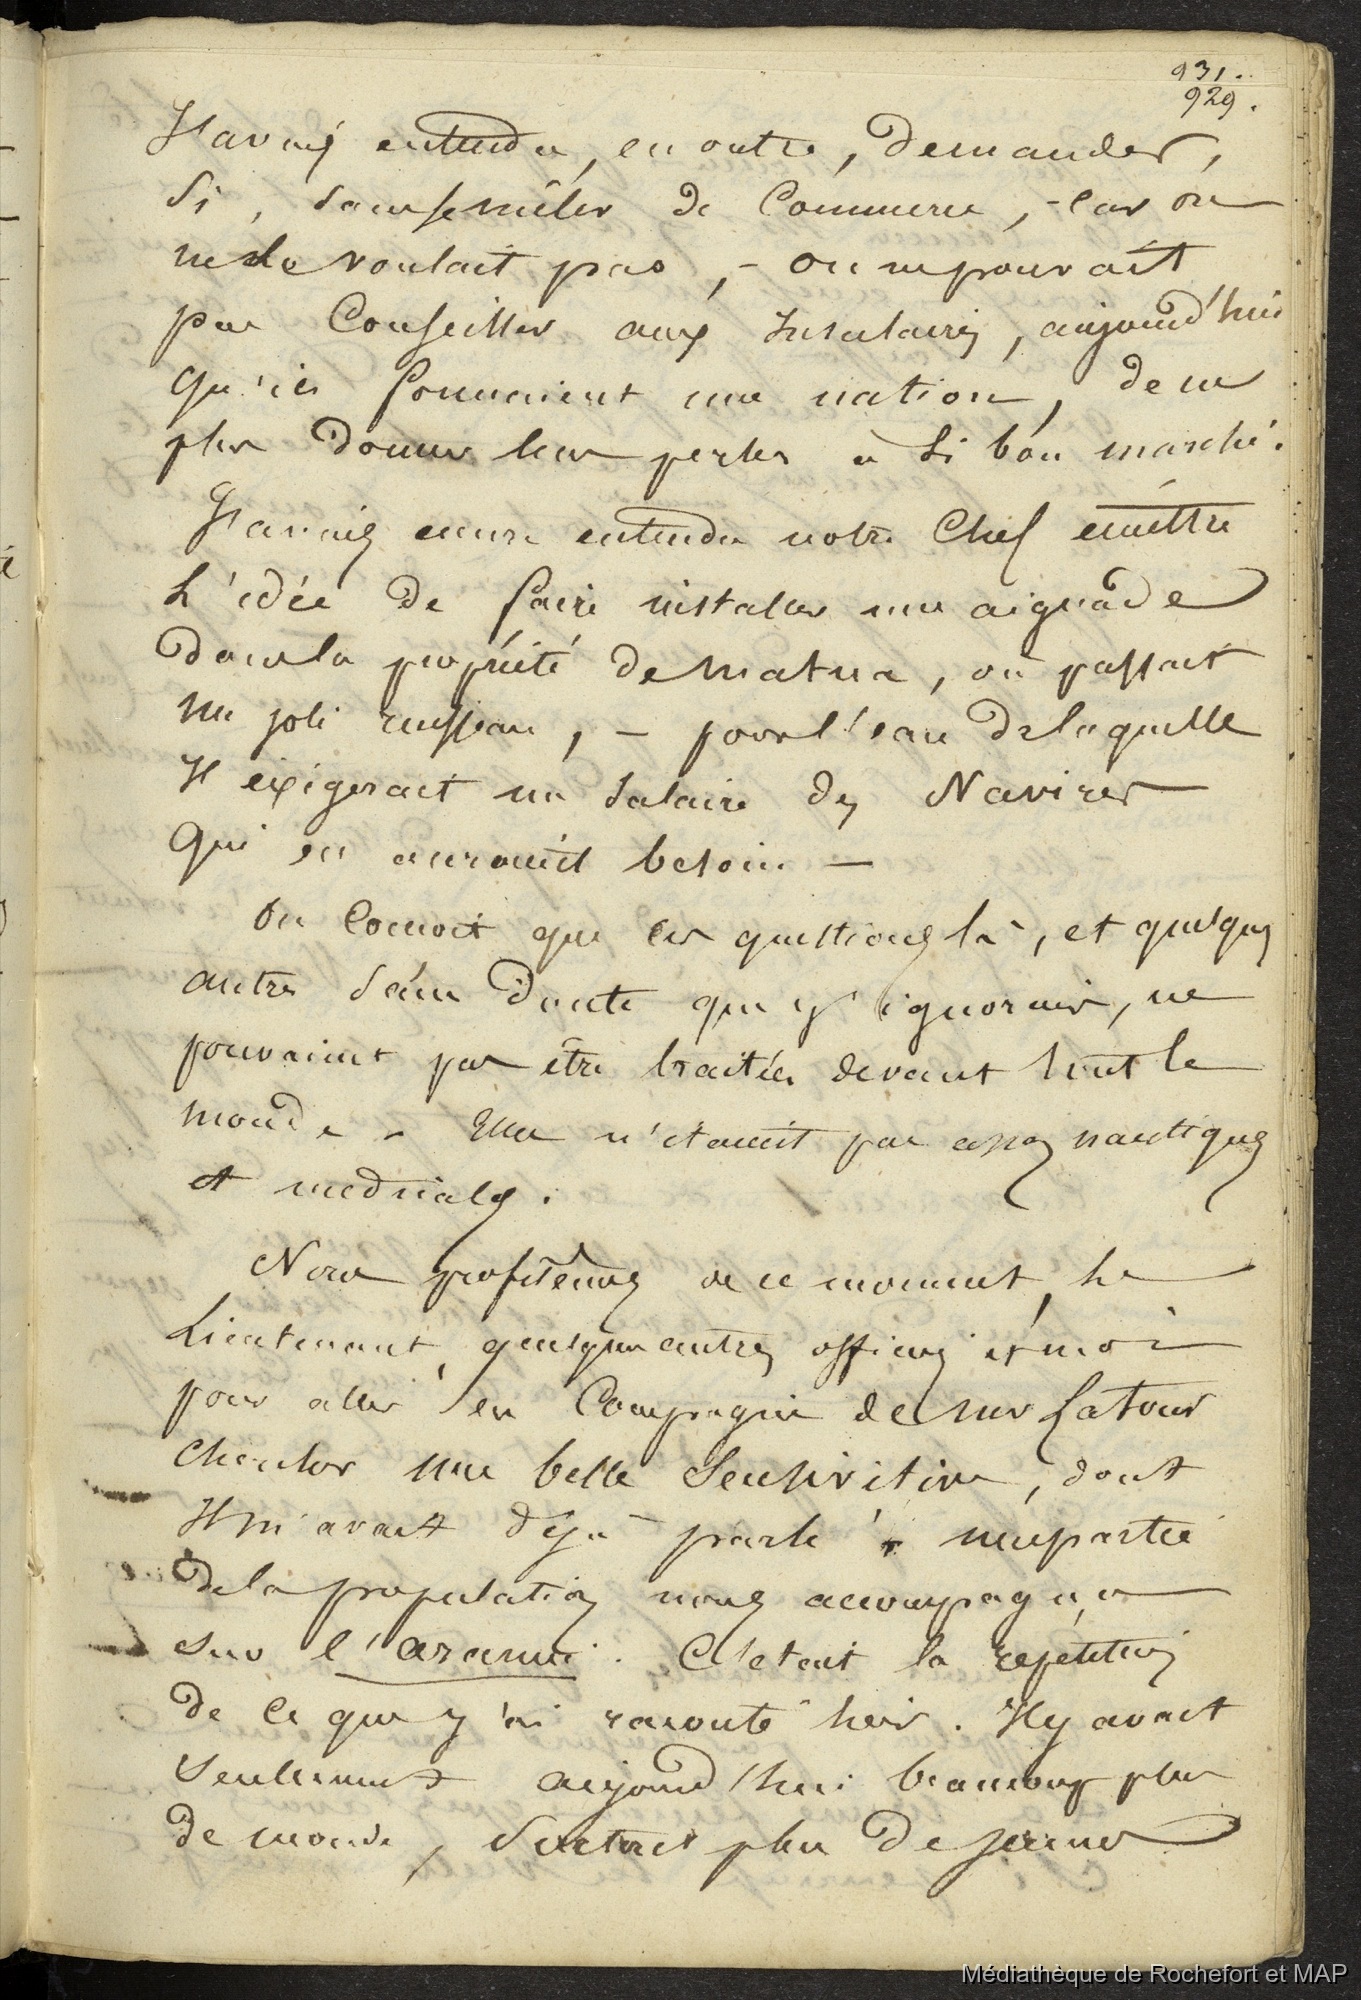 931.
929.
J'avais entendu, en outre, demander,
si, sans se mêler de Commerce, - car on
ne le voulait pas, - on ne pouvait
pas Conseiller aux Insulaires, aujourd'hui
qu'ils formaient une nation, de ne
plus donner leurs perles à si bon marché.
J'avais encore entendu notre Chef emettre
L'idée de faire installer une aiguade
dans la propriété de Matua, où passait
un joli ruisseau, - pour l'eau de laquelle
Il exigerait un salaire des Navires
qui en auraient besoin -
On Conçoit que ces questions là, et quelques
autres sans doute que j'ignorais, ne
pouvaient pas être traitées devant tout le
monde. Elles n'étaient pas assez nautiques
et médicales.
Nous profitâmes de ce moment, le
Lieutenant, quelques autres officiers et moi
pour aller en Compagnie de Mr Latour
chercher une belle sensitive, dont
Il m'avait déjà parlé. une partie
de la population nous accompagna
sur l'arami. C'était la répétition
de Ce que j'ai raconté hier. Il y avait
seulement aujourd'hui beaucoup plus
de monde, surtout plus de jeunes